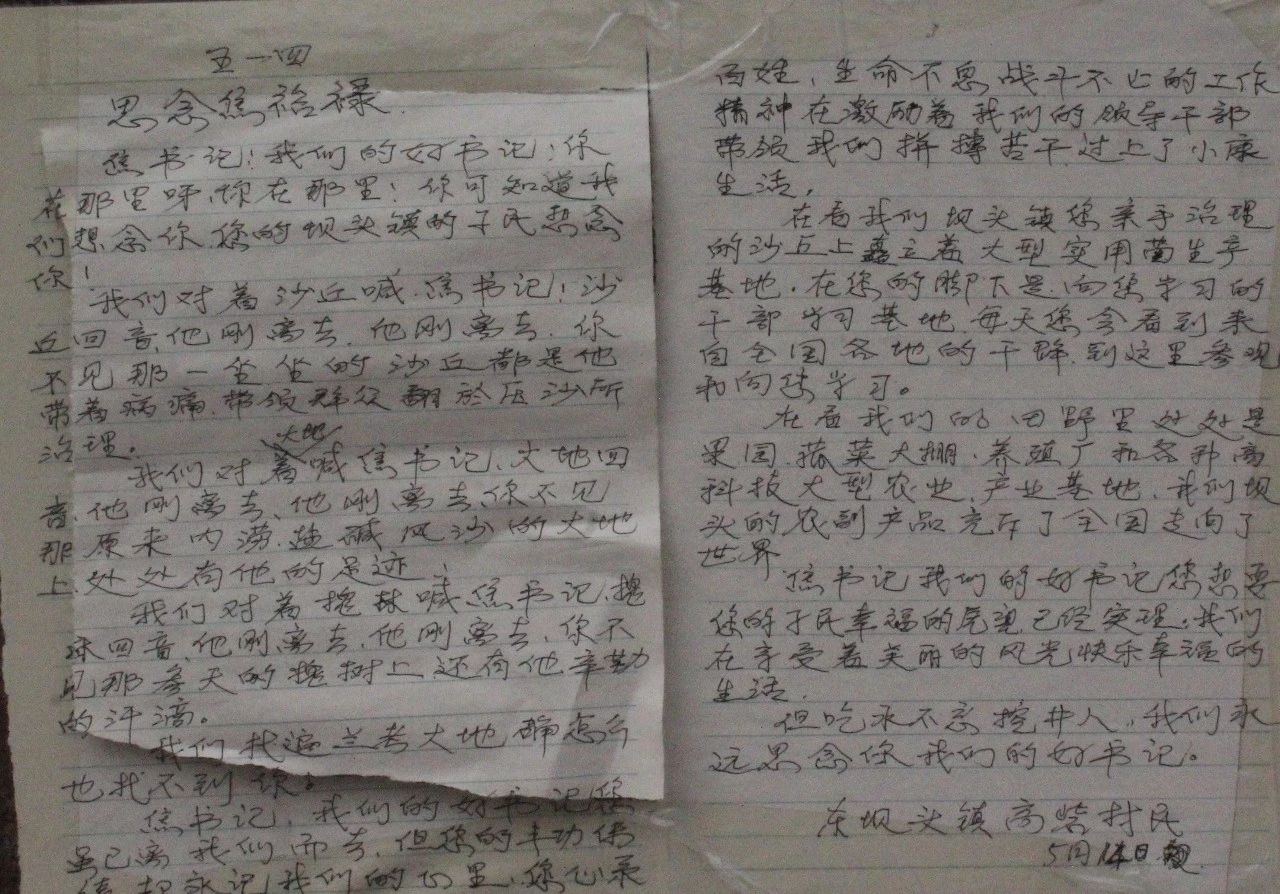 五一四
思念焦裕禄
焦书记!我们的好书记!你
在那里呀,你在那里!你可知道我
们想念你您的坝头镇的子民想念
你!
我们对着沙丘喊.焦书记!沙
丘回音,他刚离去.他刚离去.你
不见那一坐坐的沙丘都是他
带着病痛.带领群众翻於压沙所
治理。
大地
我们对着喊焦书记、大地回
音.他刚离去、他刚离去你不见
那原来内涝.盐碱风沙的大地
上.处处有他的足迹.
我们对着槐林喊焦书记.槐
林回音.他刚离去.他刚离去.你不
见那参天的槐树上还有他辛勤
的汗滴。
我们找遍兰考大地 怎么
也找不到你。
焦书记.我们的好书记您
虽已离我们而去.但您的丰功伟
永记我们的心里.您
百姓.生命不息战斗不止的工作
精神在激励着我们的领导干部
带领我们拼搏苦干.过上了小康
生活.
在看我们坝头镇您亲手治理
的沙丘上矗立着大型实用菌生产
基地.在您的脚下是.向您学习的
干部学习基地.每天您会看到来
自全国各地的干群.到这里参观
和向您学习。
在看我们的田野里处处是
果园.蔬菜大棚.养殖厂和各种高
科技大型农业.产业基地.我们坝
头的农副产品充斥了全国走向了
世界
焦书记我们的好书记您想要
您的子民幸福的愿望已经实理.我们
在享受着美丽的风光快乐幸福的
生活.
但吃水不忘挖井人.我们永
远思念你我们的好书记。
东坝头镇高 村民
5月 日